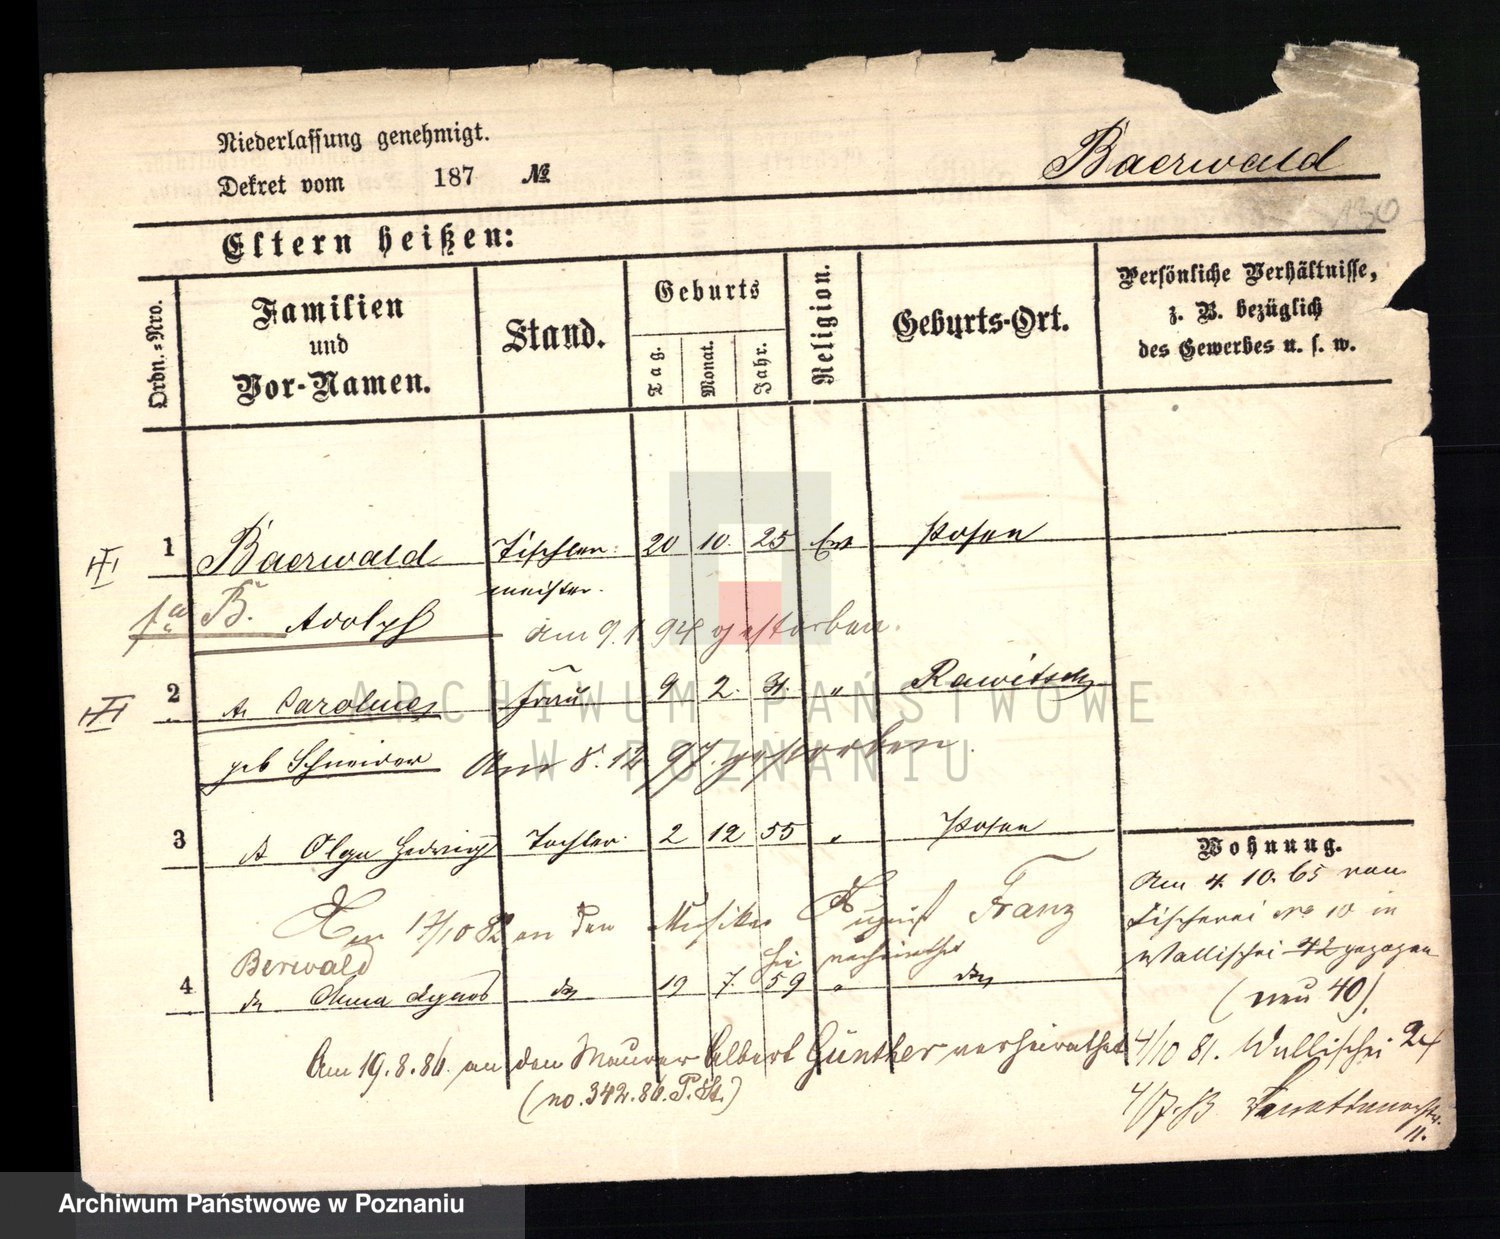 Niederlassung genehmigt.
Dekret vom 187 №
Baerwald
130
Eltern heißen:
Ordn.-Nro.
Familien
und
Vor-Namen.
Stand.
Geburts
Tag. Monat. Jahr.
Religion.
Geburts-Ort.
Persönliche Verhältnisse,
z. B. bezüglich
des Gewerbes u. s. w.
1 Baerwald Tischler- 20 10. 25 Ev Posen
meister.
B. Adolph
Am 9.1.94 gestorben.
2 Caroline Frau 9 2. 31. " Rawitsch
geb Schneider
Am 8.12 97. gestorben.
3 Olga Hedwig Tochter 2 12 55 " Posen
Am 17/10 82 an den Musiker August Franz
Berwald verheirathet
4 Anna Agnes 19 7. 59 "
Am 19.8.86. an den Maurer Albert Günther verheirathet
(no. 342.86. P. St.)
Wohnung.
Am 4. 10. 65 von
Fischerei No 10 in
Wallischei 42 gezogen
(neu 40).
4/10 81. Wallischei
ARCHIWUM PAŃSTWOWE
W POZNANIU
Archiwum Państwowe w Poznaniu